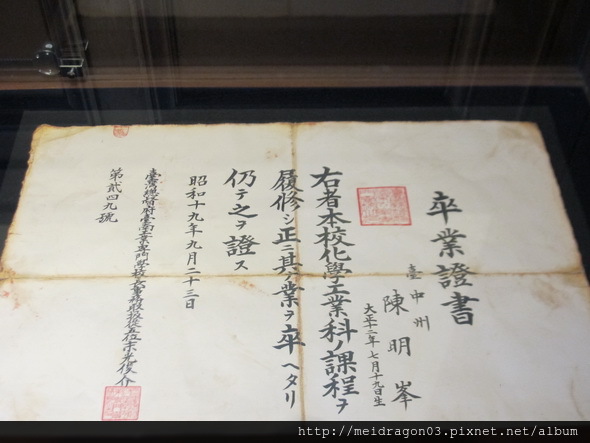 卒業證書
臺中州
陳明峯
大正十二年七月十九日生
右者本校化學工業科ノ課程ヲ
履修シ正ニ其ノ業ヲ卒ヘタリ
仍テ之ヲ證ス
昭和十九年九月二十三日
臺灣總督府臺南工業專門學校長事務取扱從五位末光俊介
第貳四九號
http://meidragon03.pixnet.net/album